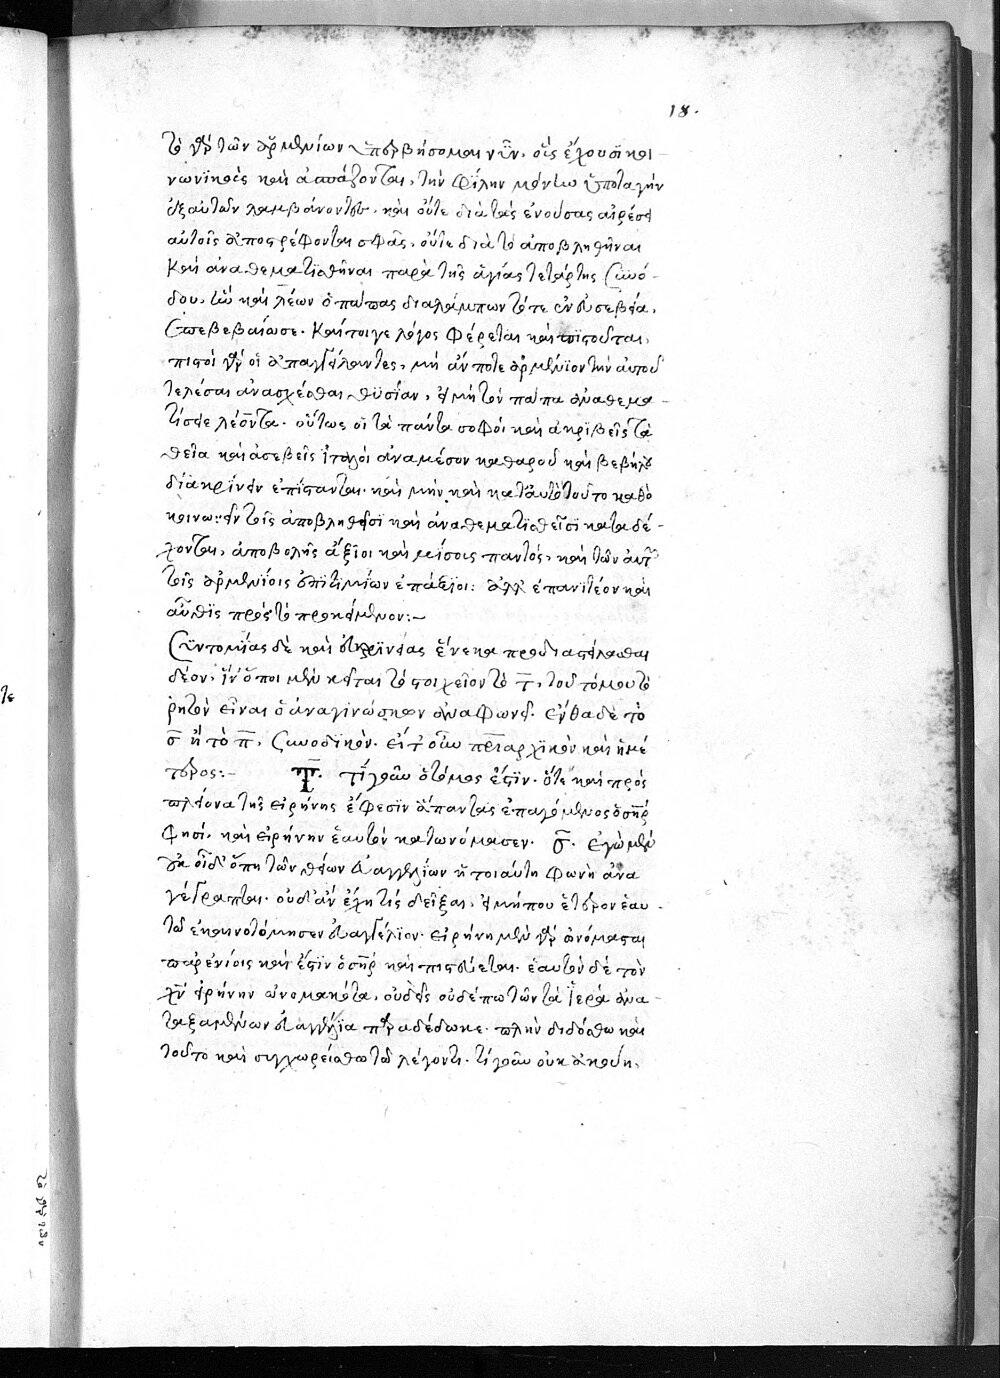 18.
τὸ γὰρ τῶν ἀρμενίων ὑπερβήσομαι νῦν, οἷς ἔχουσϊ κοι-
νωνϊκῶς καὶ ἀσπάζονται, τὴν φίλην μόνην ὑποταγὴν
ἐξ αὐτῶν λαμβάνοντες, καὶ οὔτε διὰ τὰς ἐνούσας αἱρέσεις
αὐτοῖς ἀποστρέφονται σφᾶς, οὔτε διὰ τὸ ἀποβληθῆναι
καὶ ἀναθεματισθῆναι παρὰ τῆς ἁγίας τετάρτης συνό-
δου, ἣν καὶ λέων ὁ πάπας διαλάμπων τότε ἐν εὐσεβεία,
ἐπεβεβαίωσε. καίτοιγε λόγος φέρεται καὶ πϊστοῦται,
πιστοὶ γὰρ οἱ ἀπαγγείλαντες, μὴ ἄν ποτε ἀρμένϊον τὴν αὐτοῦ
τελέσαι ἀνασχέσθαι θϋσίαν, εἰ μὴ τὸν πάπα ἀναθεμα-
τίσειε λέοντα. οὕτως οἱ τὰ πάντα σοφοὶ καὶ ἀκρϊβεῖς τὰ
θεῖα καὶ ἀσεβεῖς ἰταλοὶ ἀναμέσον καθαροῦ καὶ βεβήλου
διακρίνειν ἐπίστανται. καὶ μὴν καὶ κατ' αὐτὸ τοῦτο καθὸ
κοινωνεῖν τοῖς ἀποβληθεῖσϊ καὶ ἀναθεματϊσθεῖσϊ καταδέ-
χονται, ἀποβολῆς ἄξϊοι καὶ μίσους παντός, καὶ τῶν αὐτῶν
τοῖς ἀρμενίοις ἐπϊτιμίων ἐπάξϊοι: ἀλλ' ἐπανϊτέον καὶ
αὖθϊς πρὸς τὸ προκείμενον:-
Συντομίας δὲ καὶ εὐκρϊνείας ἕνεκα προδιαστείλασθαι
δέον, ἵν' ὅποι μὲν κεῖται τὸ στοιχεῖον τὸ τ̅, τοῦ τόμου τὸ
ῥητὸν εἶναι ὁ ἀναγϊνώσκων ἀναφωνεῖ. ἔνθα δὲ τὸ
σ̅ ἢ τὸ π̅, συνοδικὸν. εἴτ' οὖν πατριαρχϊκὸν καὶ ἡμέ-
τερος:- Τ̅. τί γοῦν ὁ τόμος ἐστίν. ὅτε καὶ πρὸς
πλείονα τῆς εἰρήνης ἔφεσϊν ἅπαντας ἐπαγόμενος ὁ σωτὴρ
φησί. καὶ εἰρήνην ἑαυτὸν κατωνόμασεν. σ̅. ἐγὼ μὲν
οὐκ οἶδ' ὅπη τῶν θείων εὐαγγελίων ἡ τοιαύτη φωνὴ ἀνα
γέγραπται. οὐδ' ἂν ἔχη τίς δεῖξαι, εἰ μήπου ἕτερον ἑαυ-
τῶ ἐκαινοτόμησεν εὐαγγέλϊον. εἰρήνη μὲν γὰρ ὠνόμασται
παρ' ἐνίοις καὶ ἔστϊν ὁ σωτὴρ καὶ πιστεύεται. ἑαυτὸν δὲ τὸν
χν̅ εἰρήνην ὠνομακότα, οὐδεὶς οὐδέπω τῶν τὰ ἱερὰ ἀνα-
ταξαμένων εὐαγγέλϊα παραδέδωκε. πλὴν διδόσθω καὶ
τοῦτο καὶ συγχωρείσθω τῶ λέγοντι. τί γοῦν οὐκ ἀκούη,